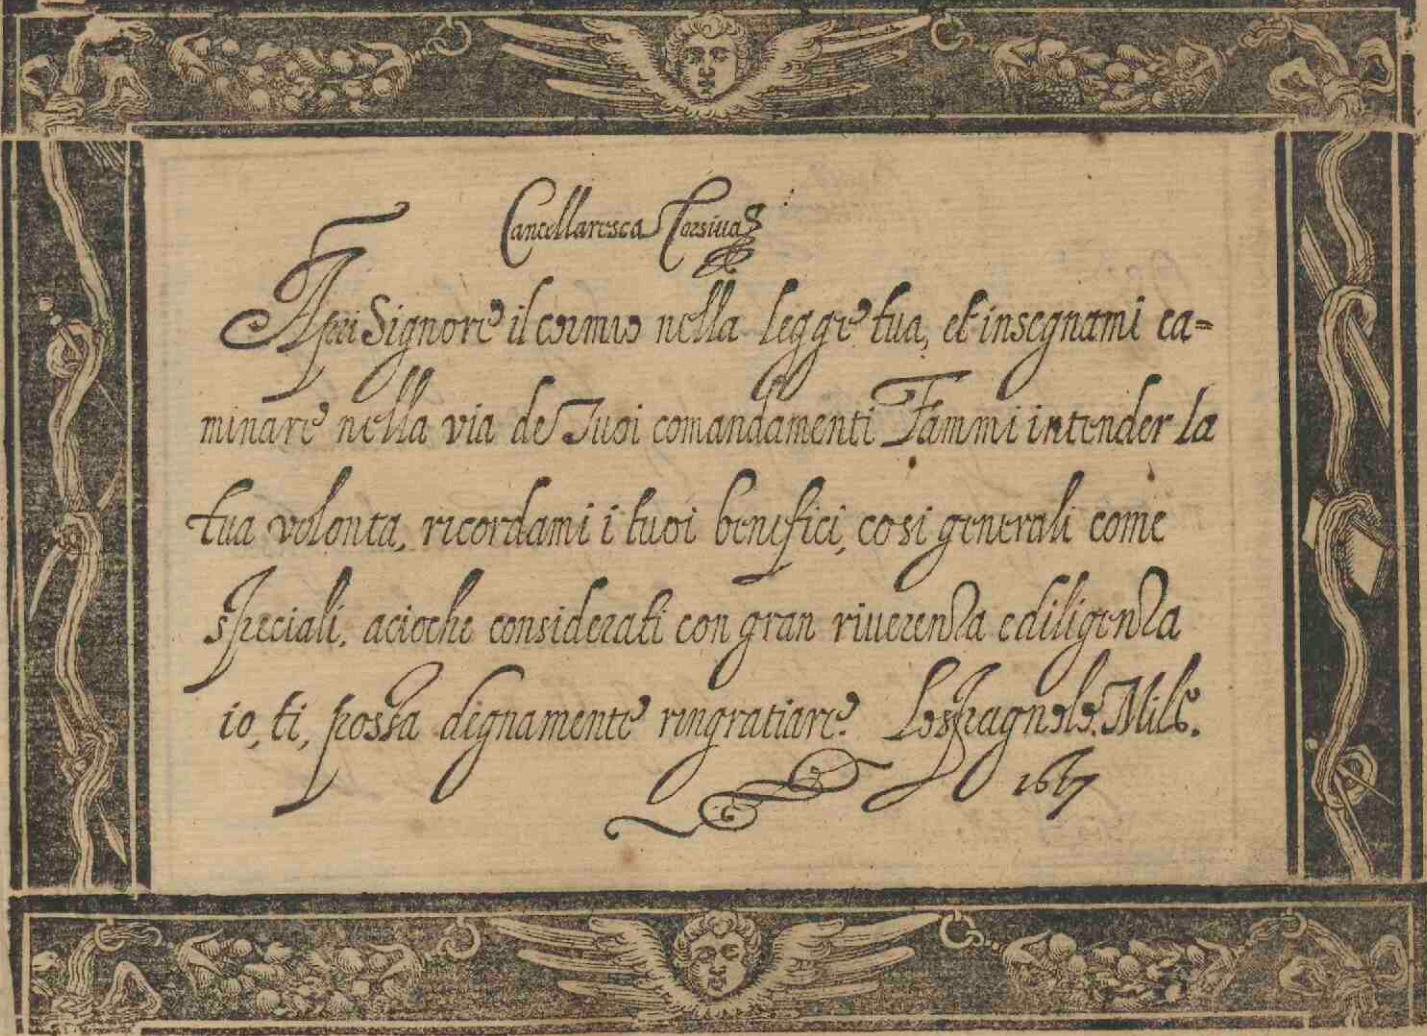 Cancellaresca Corsiua
Apri Signore il cor mio nella legge tua, et insegnami ca=
minare nella via de Tuoi comandamenti Fammi intender la
tua volonta, ricordami i tuoi benefici, cosi generali come
speciali, acioche considerati con gran riuerenza e diligenza
io, ti, possa dignamente ringratiare. Lospagnolo. Mil.
16